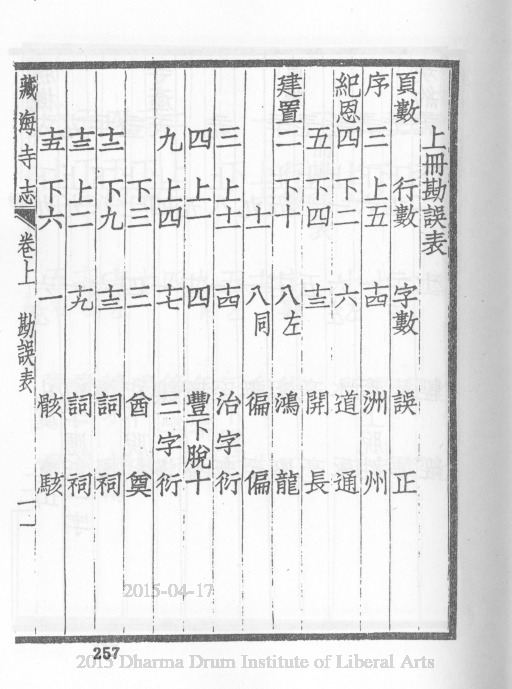 上冊勘誤表
頁數 行數 字數 誤 正
序三 上五 十四 洲 州
紀恩四 下二 六 道 通
五 下四 十三 開 長
建置二 下十 八左 鴻 龍
十一 八同 偏 偏
三 上十一 十四 治字衍
四 上一 四 豐下脫十
九 上四 十七 三字衍
下三 三 酋 奠
十二 下九 十三 詞 祠
十三 上二 十九 詞 祠
十五 下六 一 骸 駭
藏海寺志 卷上 勘誤表 一一
2015-04-17
257
2015 Dharma Drum Institute of Liberal Arts